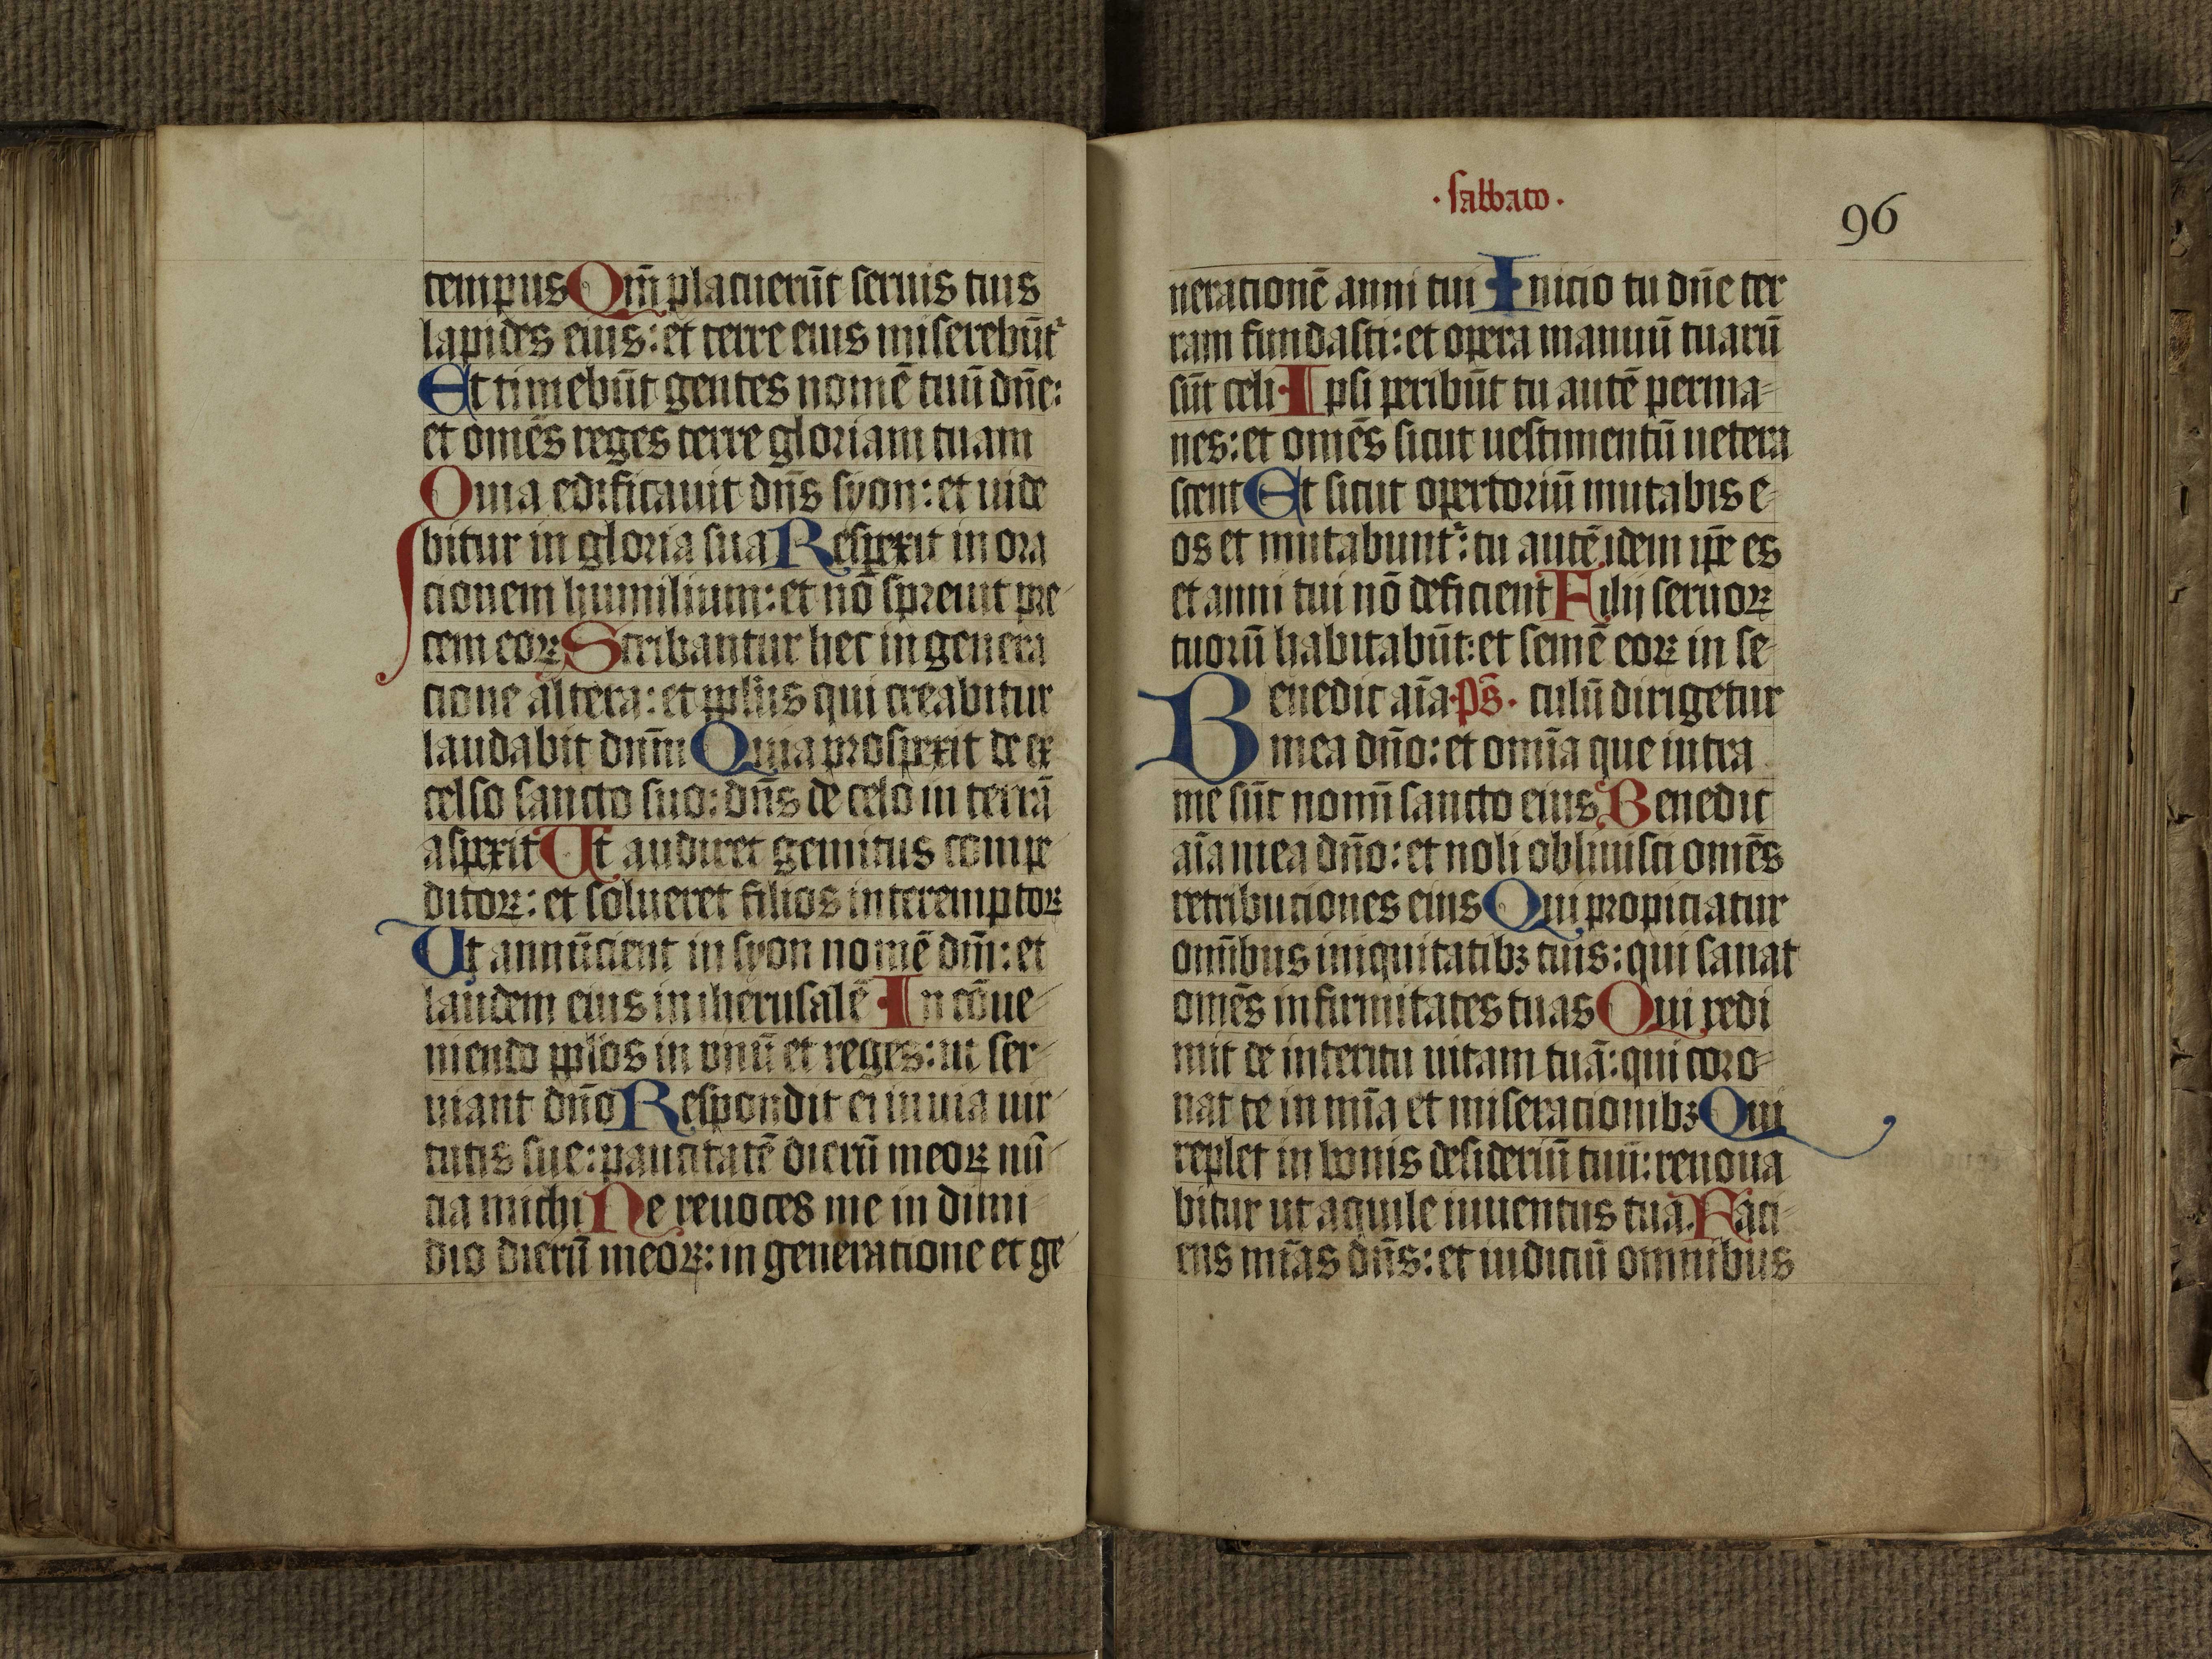 tempus Qm̄ placuerūt seruis tuis
lapides eius: et terre eius miserebūt᷑
Et timebūt gentes nomē tuū dn̄e:
et omēs reges terre gloriam tuam
Quia edificauit dn̄s syon: et uide
bitur in gloria sua Respexit in ora
cionem humilium: et nō spreuit pre-
cem eoꝝ Scribantur hec in genera
cione altera: et ppl̄us qui creabitur
laudabit dn̄m Quia prospexit de ex
celso sancto suo: dn̄s de celo in terrā
aspexit Ut audiret gemitus compe
ditoꝝ: et solueret filios interemptoꝝ
Ut annūcient in syon nomē dn̄i: et
laudem eius in iherusalē In cōue-
niendo ppl̄os in vnū et reges: ut ser-
uiant dn̄o Respondit ei in uia uir-
tutis sue: paucitatē dierū meoꝝ nū-
cia michi Ne reuoces me in dimi-
dio dierū meoꝝ: in generatione et ge-
· sabbato ·
96
nerationē anni tui Inicio tu dn̄e ter
ram fundasti: et opera manuū tuarū
sūt celi Ipsi peribūt tu autē perma-
nes: et omēs sicut uestimentū uetera
scent Et sicut opertoriū mutabis e-
os et mutabunt᷑: tu autē idem ip̄e es
et anni tui nō deficient Filij seruoꝝ
tuorū habitabūt: et semē eoꝝ in se-
Benedic aīa · p̄s · culū dirigetur
mea dn̄o: et omīa que intra
me sūt nomī sancto eius Benedic
aīa mea dn̄o: et noli obliuisci omēs
retributiones eius Qui propiciatur
omībus iniquitatibꝫ tuis: qui sanat
omēs infirmitates tuas Qui redi
mit de interitu uitam tuā: qui coro-
nat te in mīa et miserationibꝫ Qui
replet in bonis desideriū tuū: renoua
bitur ut aquile iuuentus tua. Faci-
ens mīas dn̄s: et iudiciū omnibus